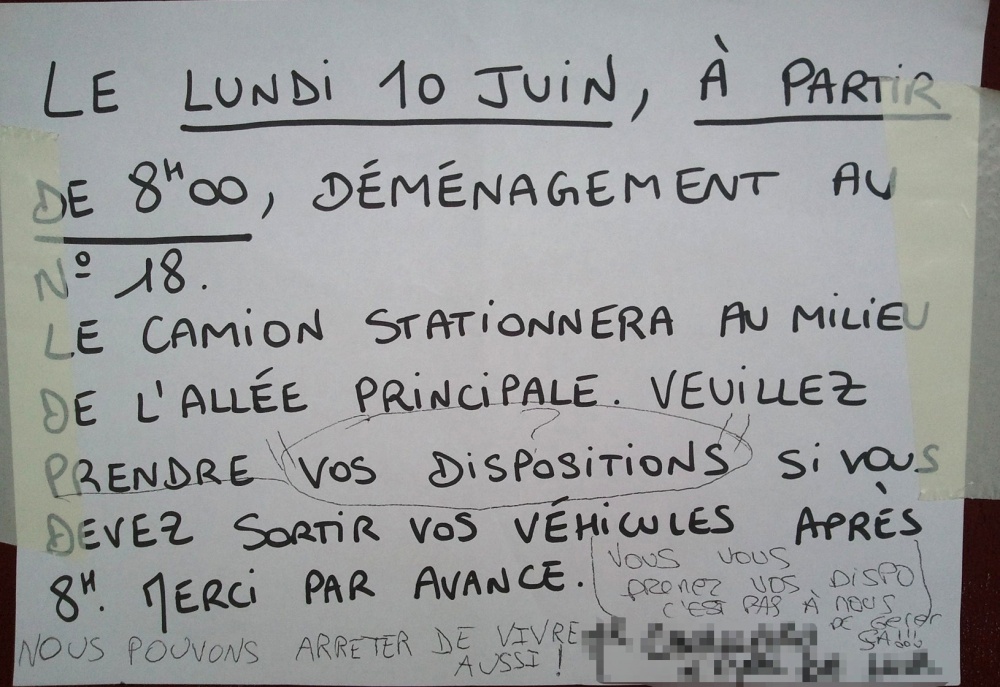 LE LUNDI 10 JUIN, À PARTIR
DE 8H00, DÉMÉNAGEMENT AU
Nº 18.
LE CAMION STATIONNERA AU MILIEU
DE L'ALLÉE PRINCIPALE. VEUILLEZ
?
PRENDRE VOS DISPOSITIONS SI VOUS
DEVEZ SORTIR VOS VÉHICULES APRÈS
8H. MERCI PAR AVANCE.
VOUS VOUS
prenez VOS DISPO
C'EST PAS À NOUS
DE Gerer
ÇA!!!
NOUS POUVONS ARRETER DE VIVRE
AUSSI !